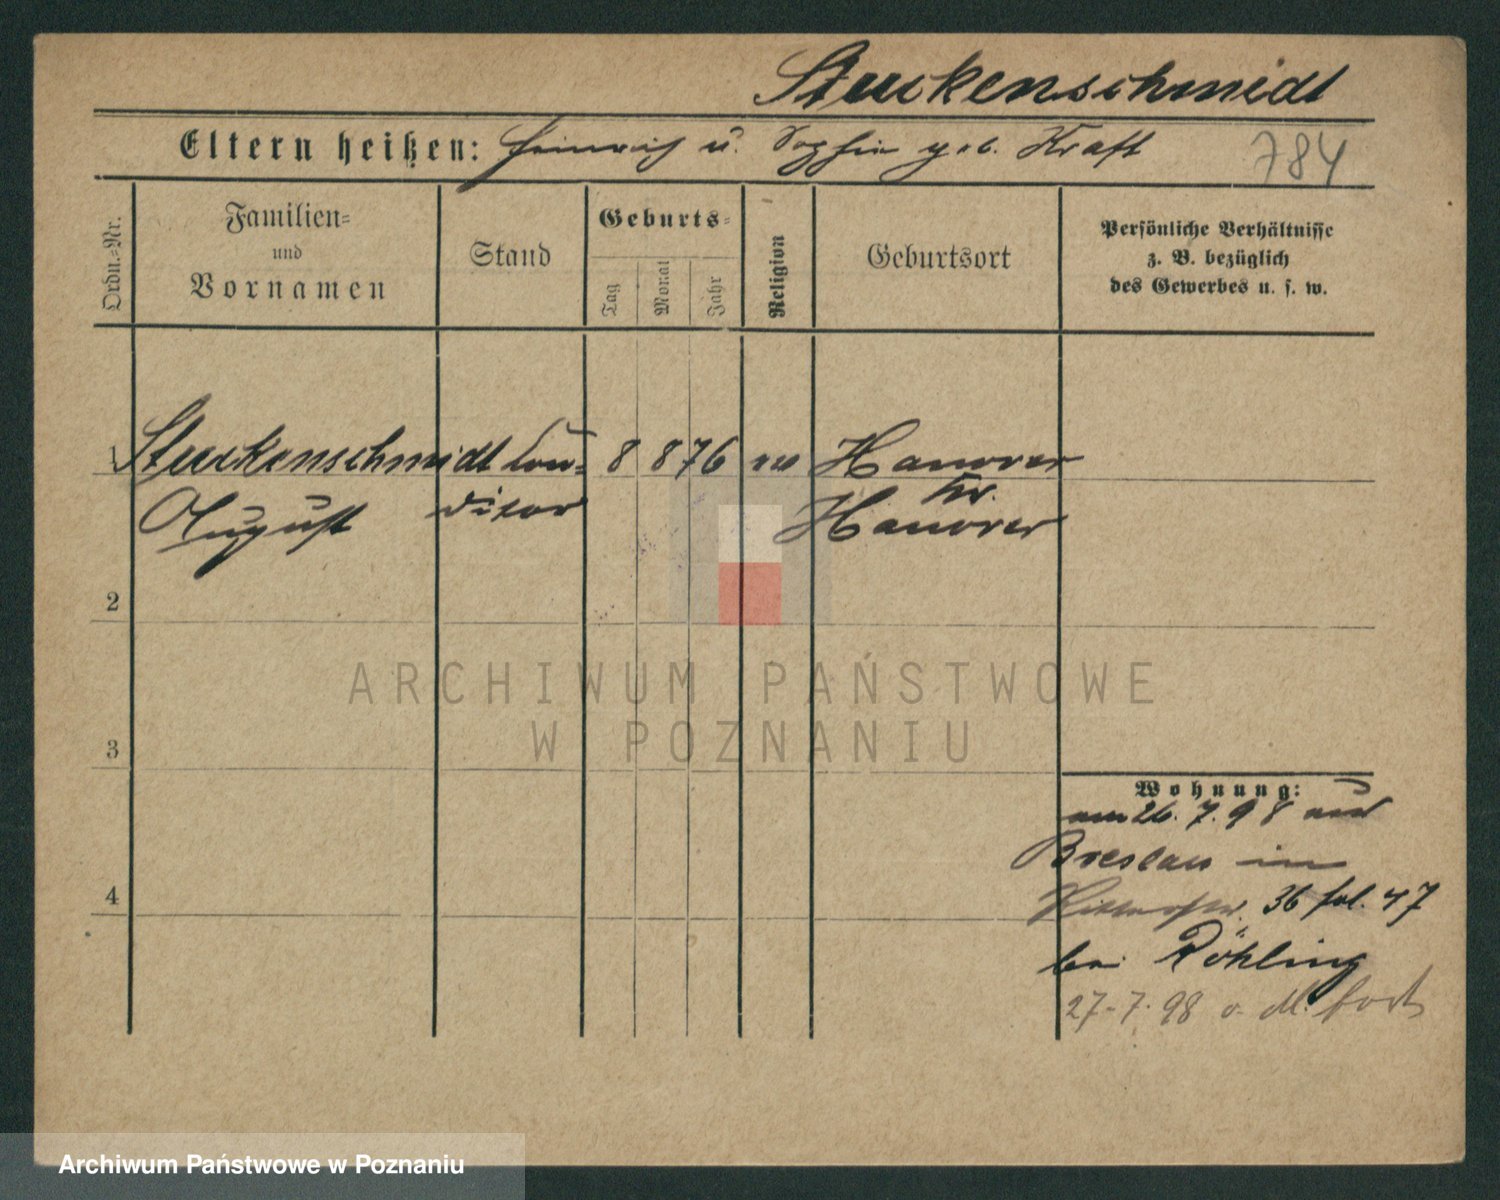 Stuckenschmidt
Eltern heißen: Heinrich u. Sophie geb. Kraft
784
Ordn.-Nr.
Familien-
und
Vornamen
Stand
Geburts-
Tag
Monat
Jahr
Religion
Geburtsort
Persönliche Verhältnisse
z. B. bezüglich
des Gewerbes u. s. w.
1 Stuckenschmidt Con- 8 8 76 ev Hanover
August ditor Kr. Hanover
2
ARCHIWUM PAŃSTWOWE
W POZNANIU
3
Wohnung:
am 26. 7. 98 aus
Breslau in
Ritterstr. 36 fol. 47
bei Röhling
4
27-7-98 o. M. fort
Archiwum Państwowe w Poznaniu